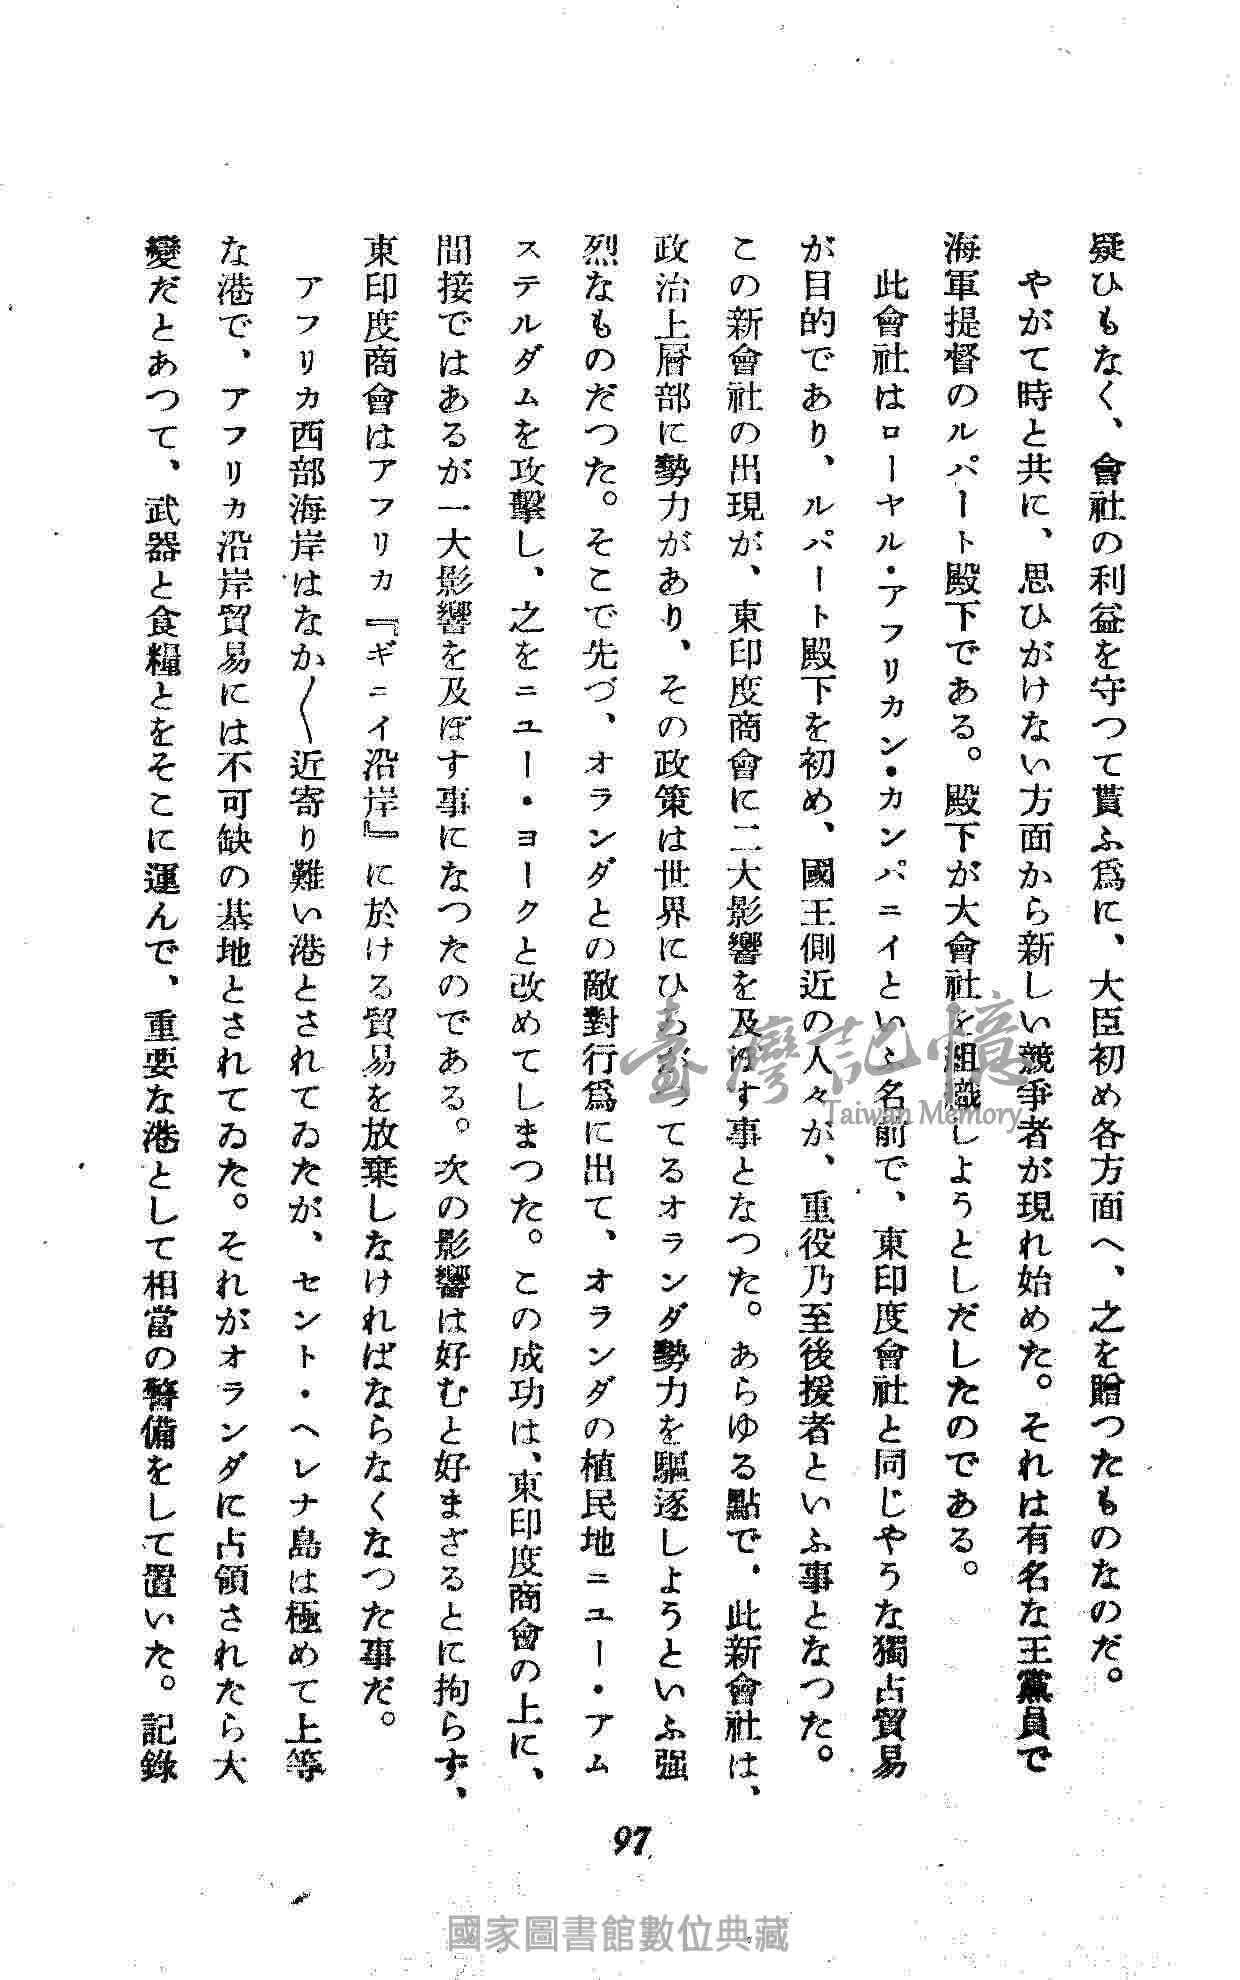 疑ひもなく、會社の利益を守つて貰ふ爲に、大臣初め各方面へ、之を贈つたものなのだ。
やがて時と共に、思ひがけない方面から新しい競爭者が現れ始めた。それは有名な王黨員で
海軍提督のルパート殿下である。殿下が大會社を組織しようとしだしたのである。
此會社はローヤル・アフリカン・カンパニイといふ名前で、東印度會社と同じやうな獨占貿易
が目的であり、ルパート殿下を初め、國王側近の人々が、重役乃至後援者といふ事となつた。
この新會社の出現が、東印度商會に二大影響を及ぼす事となつた。あらゆる點で、此新會社は、
政治上層部に勢力があり、その政策は世界にひろがつてるオランダ勢力を驅逐しようといふ强
烈なものだつた。そこで先づ、オランダとの敵對行爲に出て、オランダの植民地ニユー・アム
ステルダムを攻擊し、之をニユー・ヨークと改めてしまつた。この成功は、東印度商會の上に、
間接ではあるが一大影響を及ぼす事になつたのである。次の影響は好むと好まざるとに拘らず、
東印度商會はアフリカ『ギニイ沿岸』に於ける貿易を放棄しなければならなくなつた事だ。
アフリカ西部海岸はなか〱近寄り難い港とされてゐたが、セント・ヘレナ島は極めて上等
な港で、アフリカ沿岸貿易には不可缺の基地とされてゐた。それがオランダに占領されたら大
變だとあつて、武器と食糧とをそこに運んで、重要な港として相當の警備をして置いた。記錄
97
臺灣記憶
Taiwan Memory
國家圖書館數位典藏